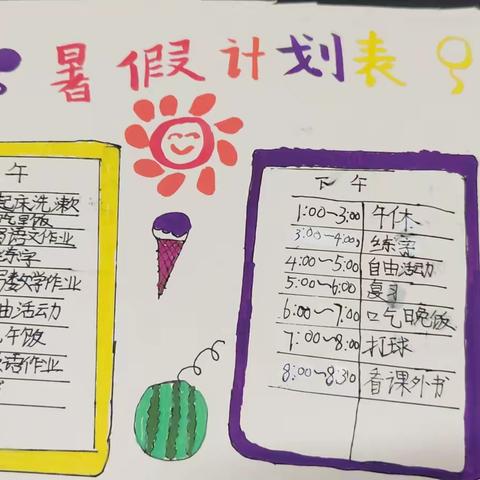 暑假计划表
午
起床洗漱
吃早饭
写语文作业
练字
写数学作业
由活动
午饭
语作业
下 午
1:00~3:00 午休
3:00~4:00 练字
4:00~5:00 自由活动
5:00~6:00 复习
6:00~7:00 吃晚饭
7:00~8:00 打球
8:00~8:30 看课外书